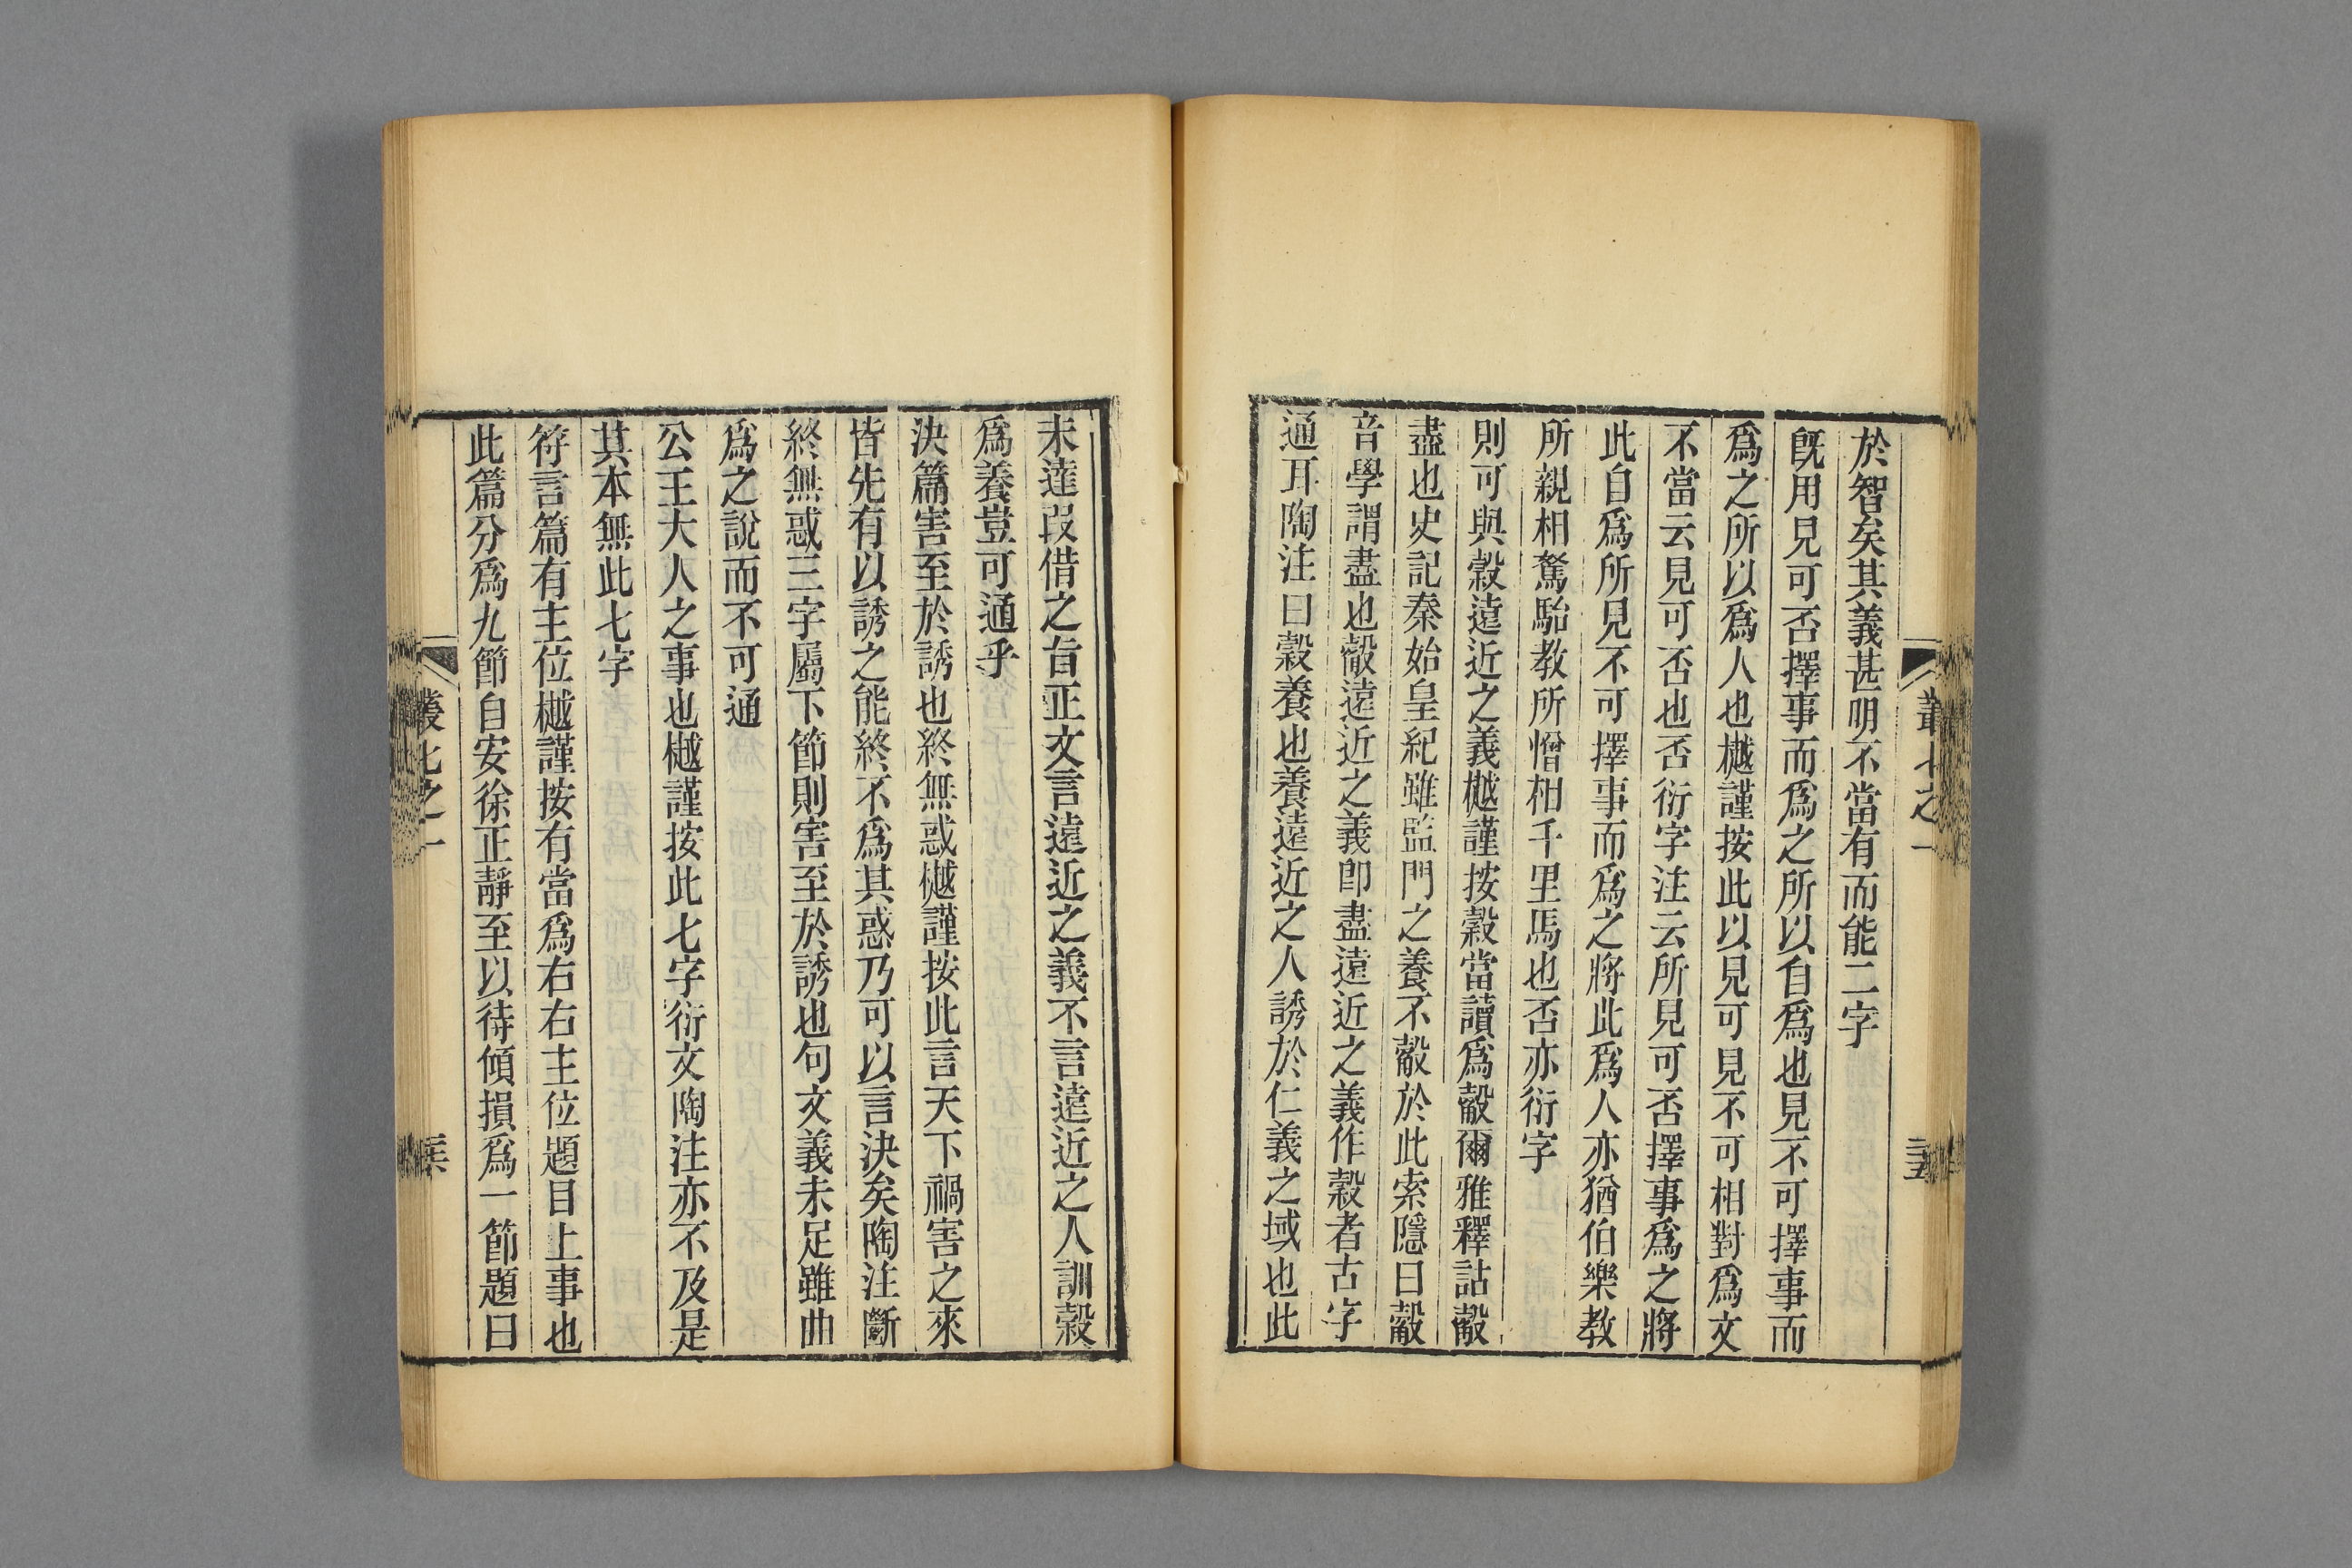 於智矣其義甚明不當有而能二字
既用見可否擇事而爲之所以自爲也見不可擇事而
爲之所以爲人也樾謹按此以見可見不可相對爲文
不當云見可否也否衍字注云所見可否擇事爲之將
此自爲所見不可擇事而爲之將此爲人亦猶伯樂教
所親相駑駘教所憎相千里馬也否亦衍字
則可與穀遠近之義樾謹按穀當讀爲㲄爾雅釋詁㲄
盡也史記秦始皇紀雖監門之養不㲄於此索隱曰㲄
音學謂盡也㲄遠近之義卽盡遠近之義作穀者古字
通耳陶注曰穀養也養遠近之人誘於仁義之域也此
叢七之一
三五
未達叚借之旨正文言遠近之義不言遠近之人訓穀
爲養豈可通乎
決篇害至於誘也終無惑樾謹按此言天下禍害之來
皆先有以誘之能終不爲其惑乃可以言決矣陶注斷
終無惑三字屬下節則害至於誘也句文義未足雖曲
爲之說而不可通
公王大人之事也樾謹按此七字衍文陶注亦不及是
其本無此七字
符言篇有主位樾謹按有當爲右右主位題目上事也
此篇分爲九節自安徐正靜至以待傾損爲一節題曰
叢七之一